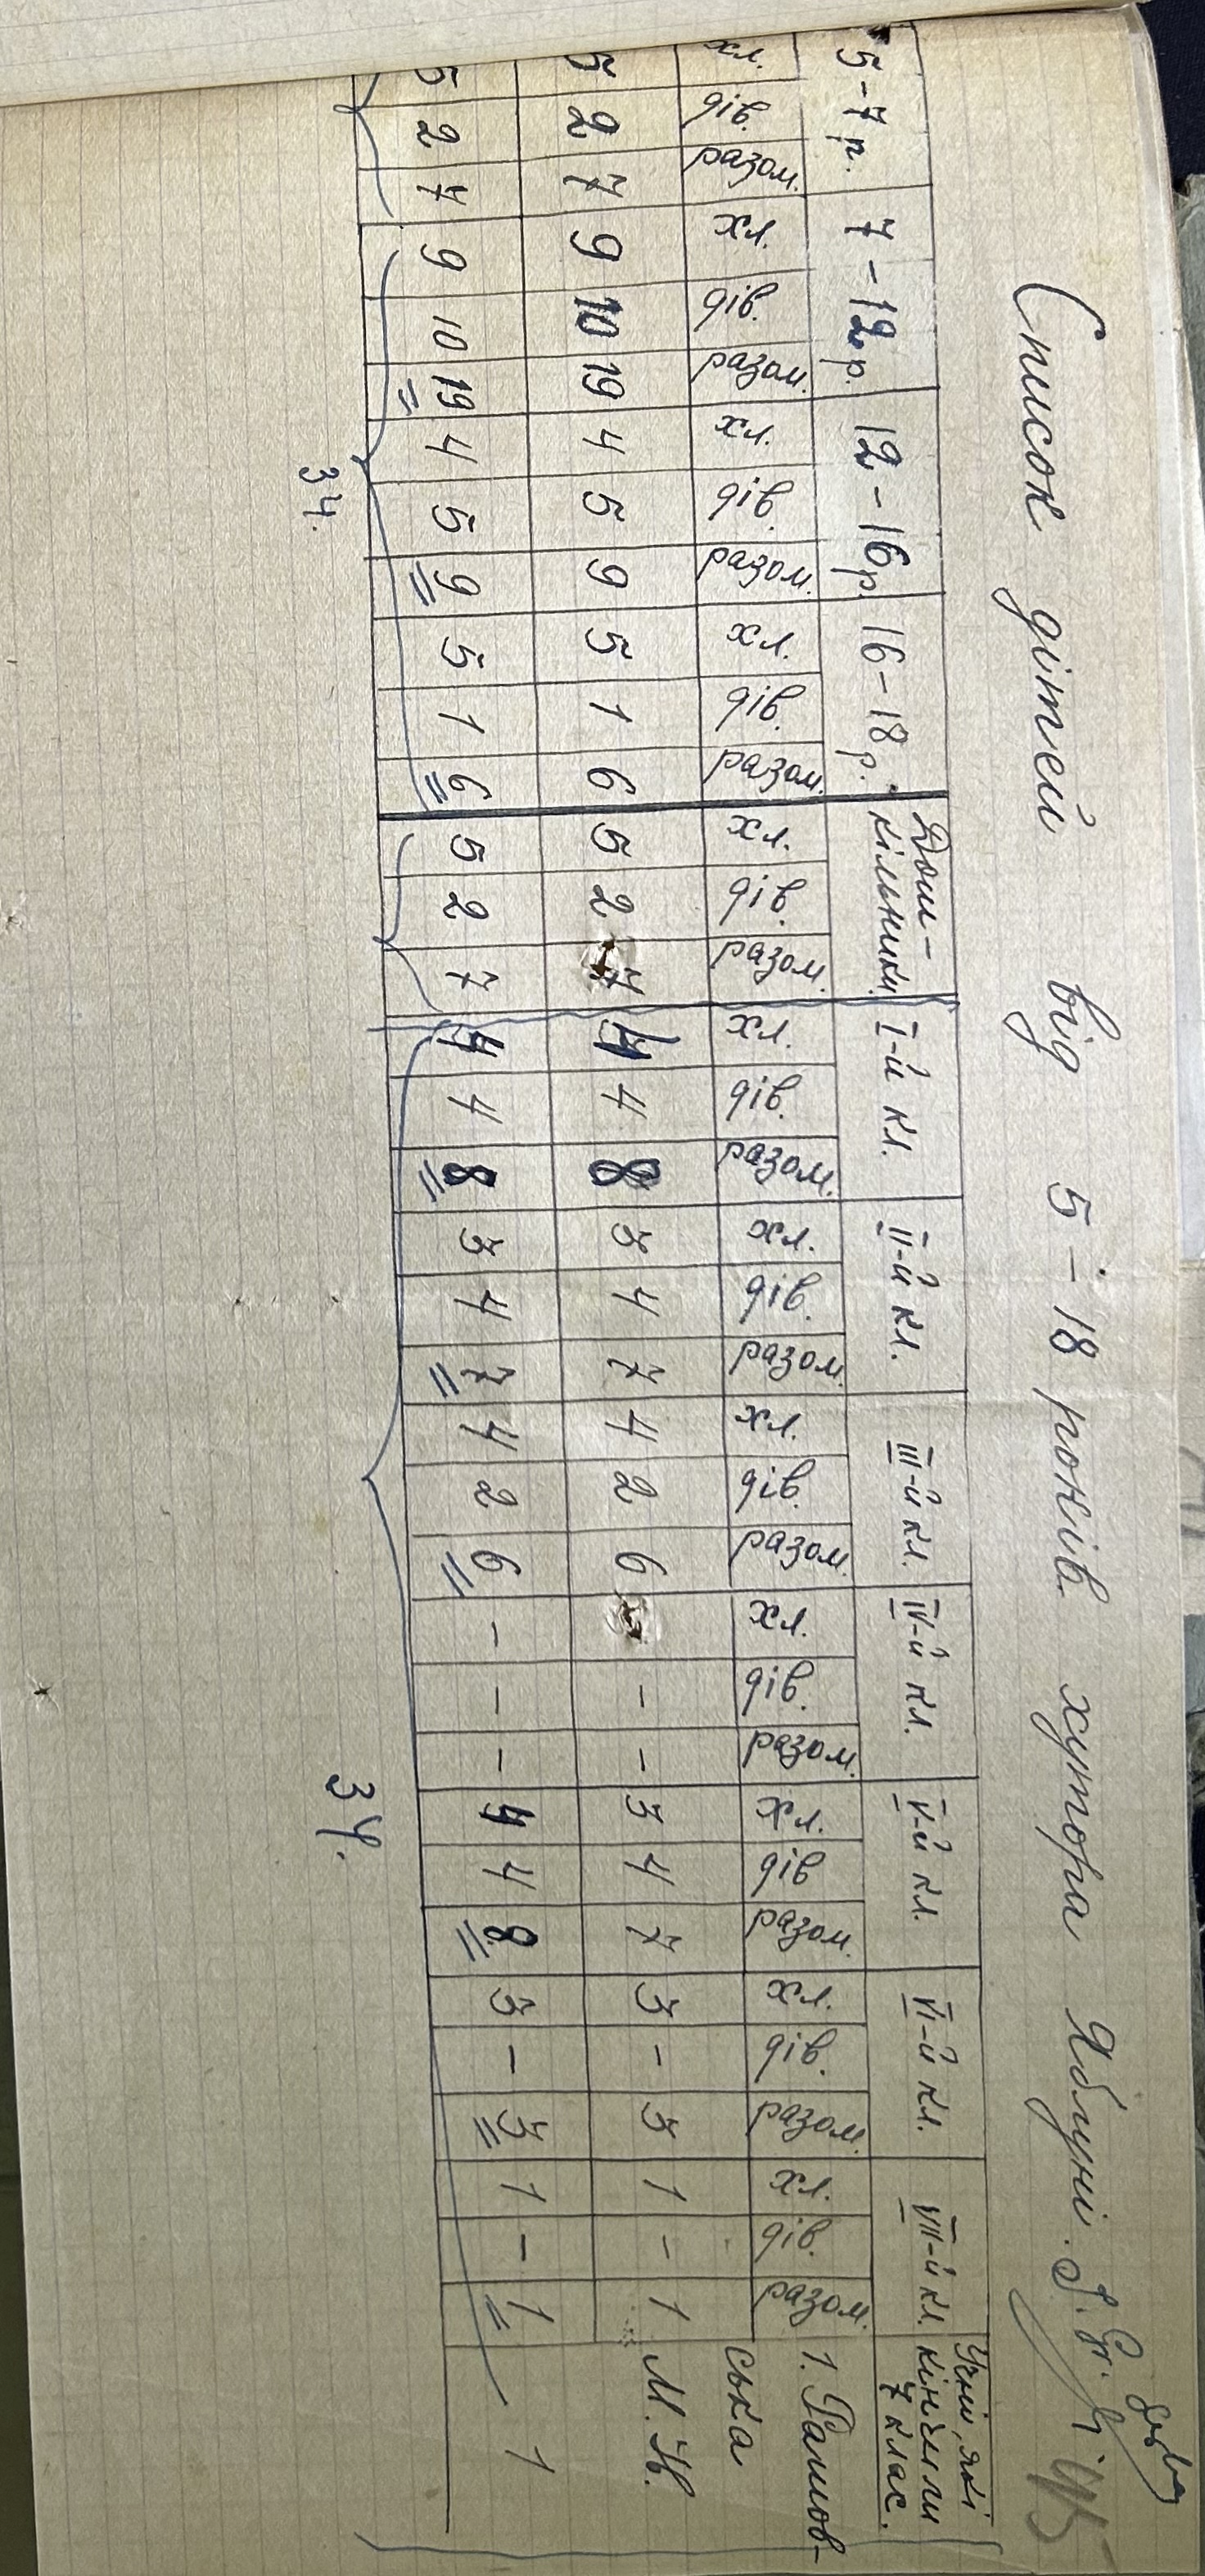 Список дітей від 5-18 років хутора Яблуні.
5-7 р. 7-12 р. 12-16 р. 16-18 р. Дош-кільники I-й кл. II-й кл. III-й кл. IV-й кл. V-й кл. VI-й кл. VII-й кл. Учні, які кінчили 7 клас.
хл. дів. разом. хл. дів. разом. хл. дів. разом. хл. дів. разом. хл. дів. разом. хл. дів. разом. хл. дів. разом. хл. дів. разом. хл. дів. разом. хл. дів разом. хл. дів. разом. хл. дів. разом. 1. Рамов-
ська
5 2 7 9 10 19 4 5 9 5 1 6 5 2 7 4 4 8 3 4 7 4 2 6 - - 3 4 7 3 - 3 1 - 1 М. Н.
5 2 7 9 10 19 4 5 9 5 1 6 5 2 7 4 4 8 3 4 7 4 2 6 - - - 4 4 8 3 - 3 1 - 1 1
34. 34.